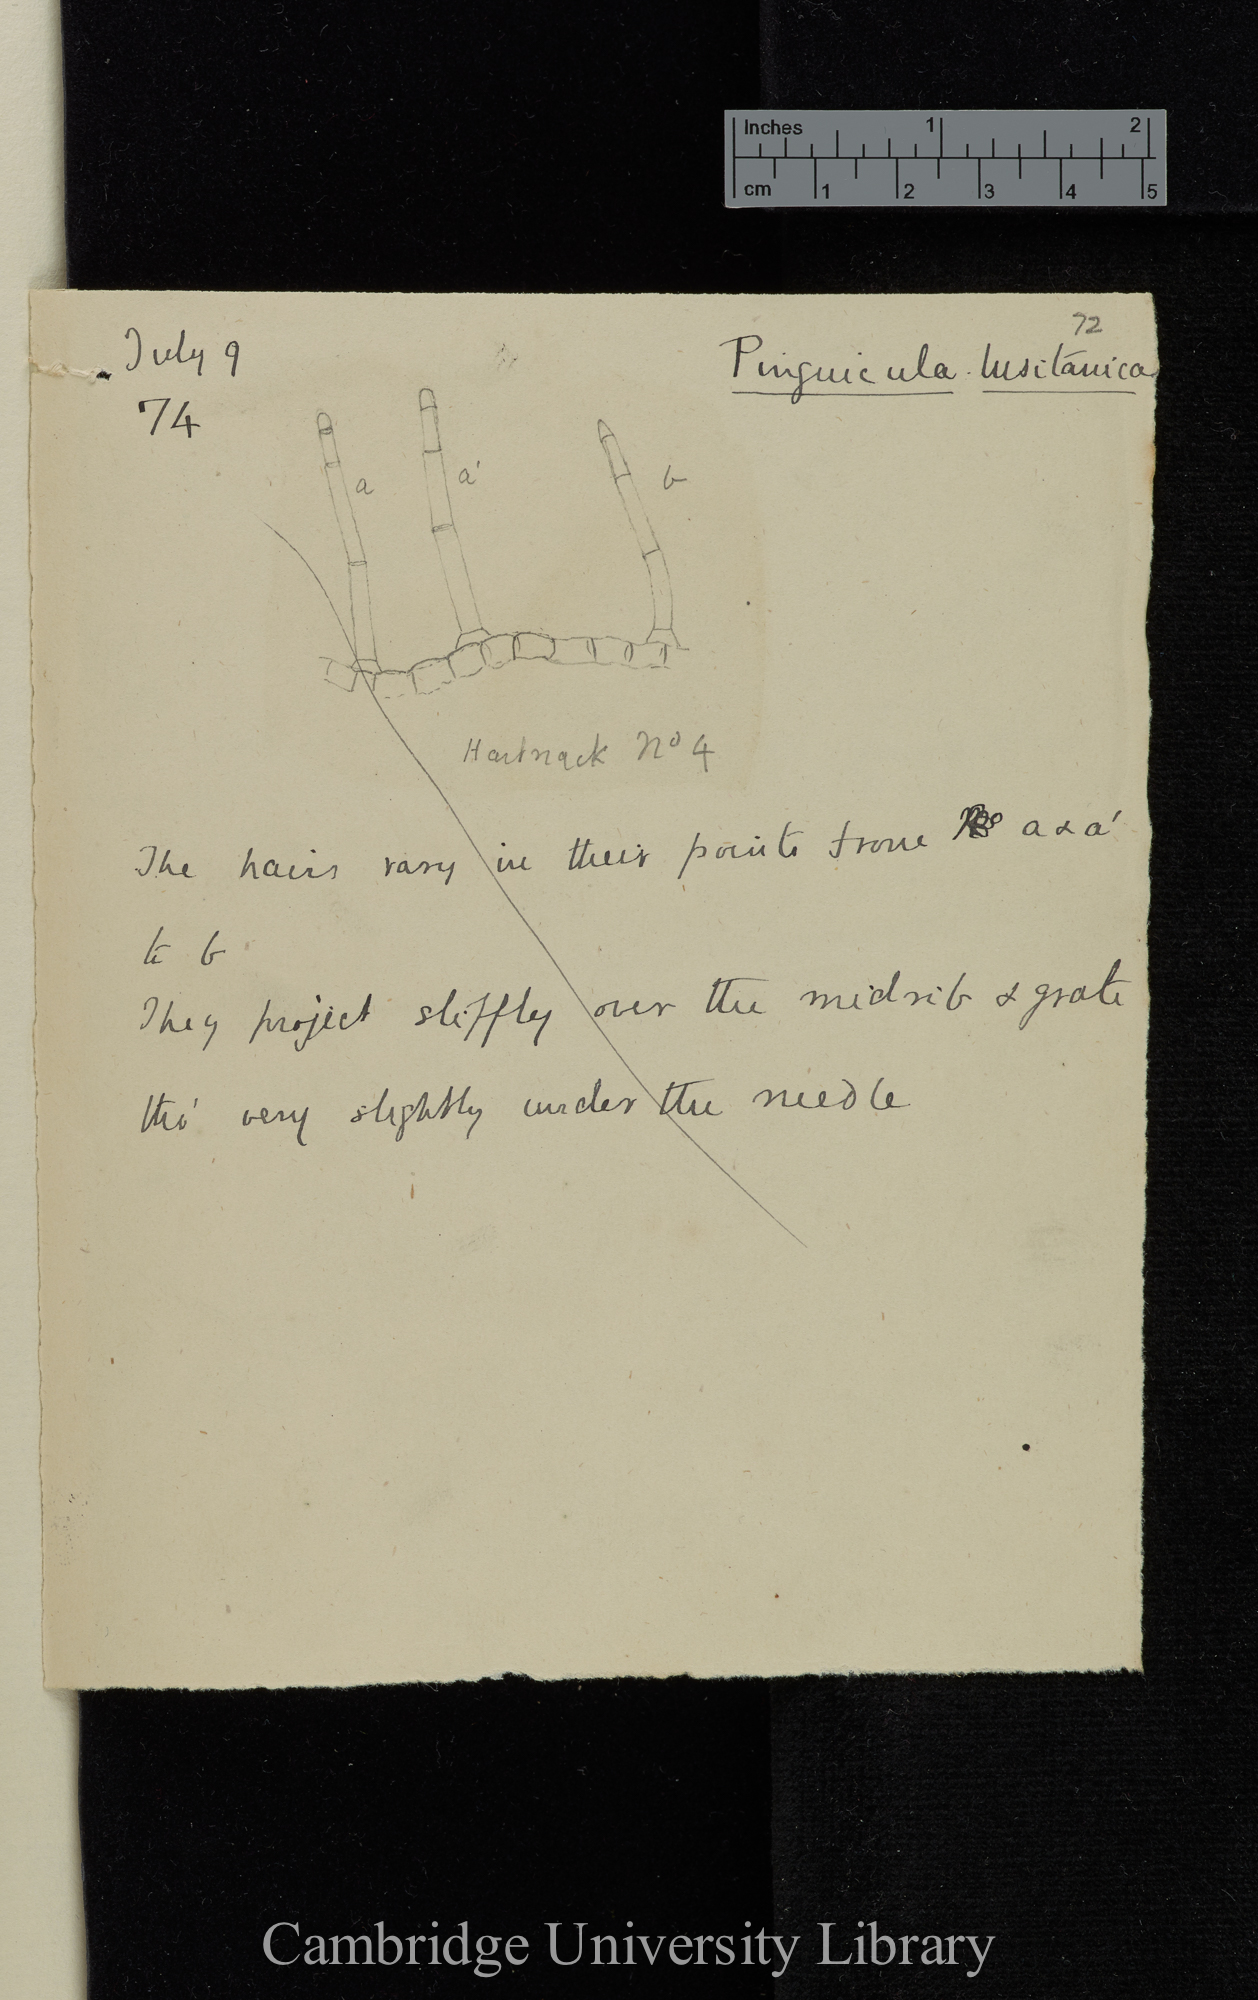 Inches 1 2
cm 1 2 3 4 5
72
July 9 Pinguicula lusitanica
74
a a' b
Hartnack No 4
The hairs vary in their points from a & a'
to b
They project stiffly over the midrib & grate
tho' very slightly under the needle
Cambridge University Library